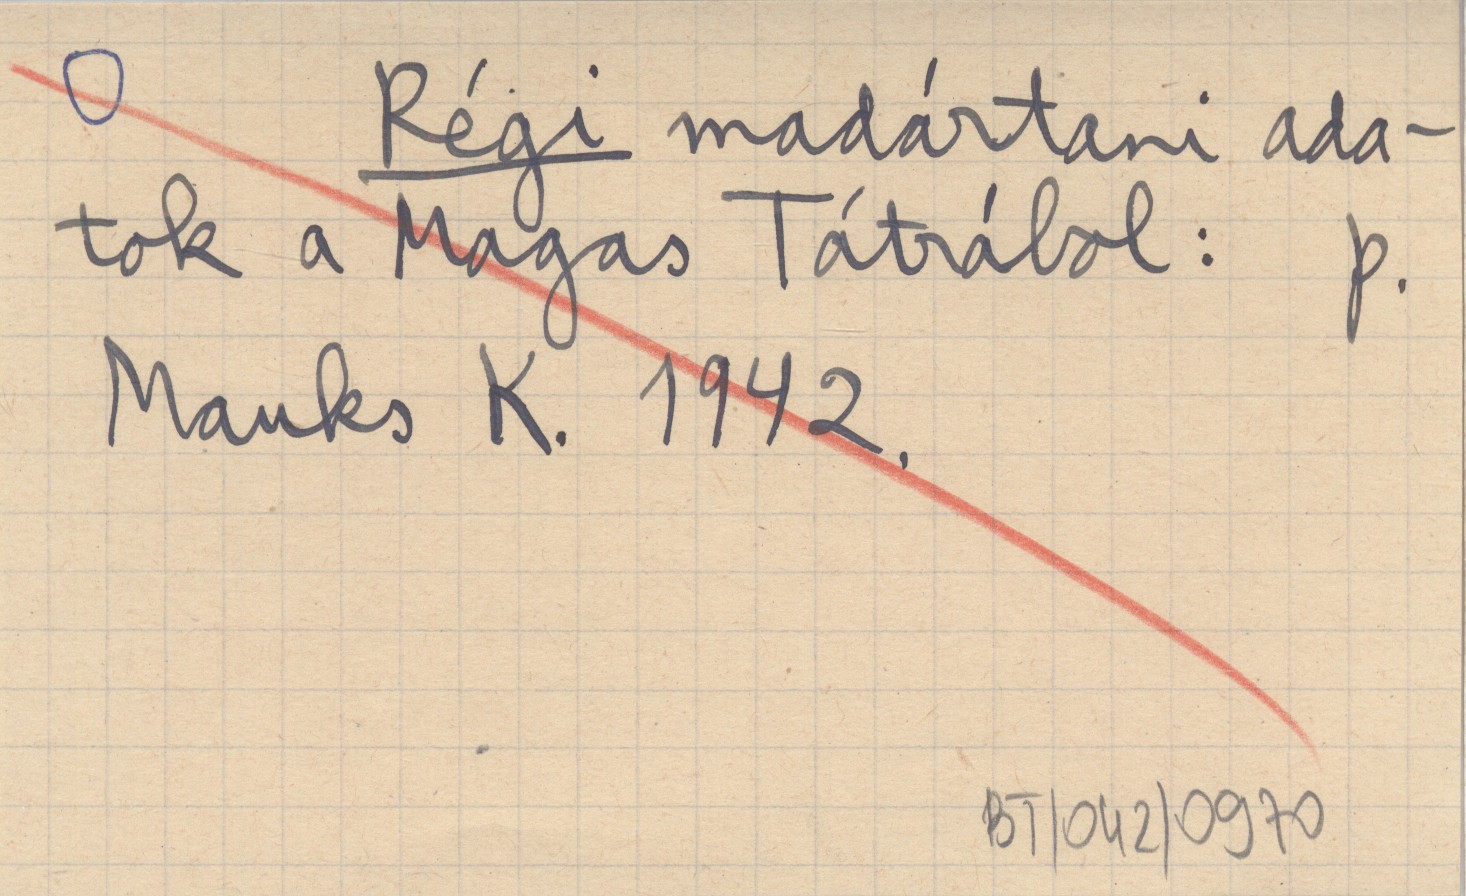 Régi madártani ada-
tok a Magas Tátrából: p.
Mauks K. 1942.
BT/042/0970